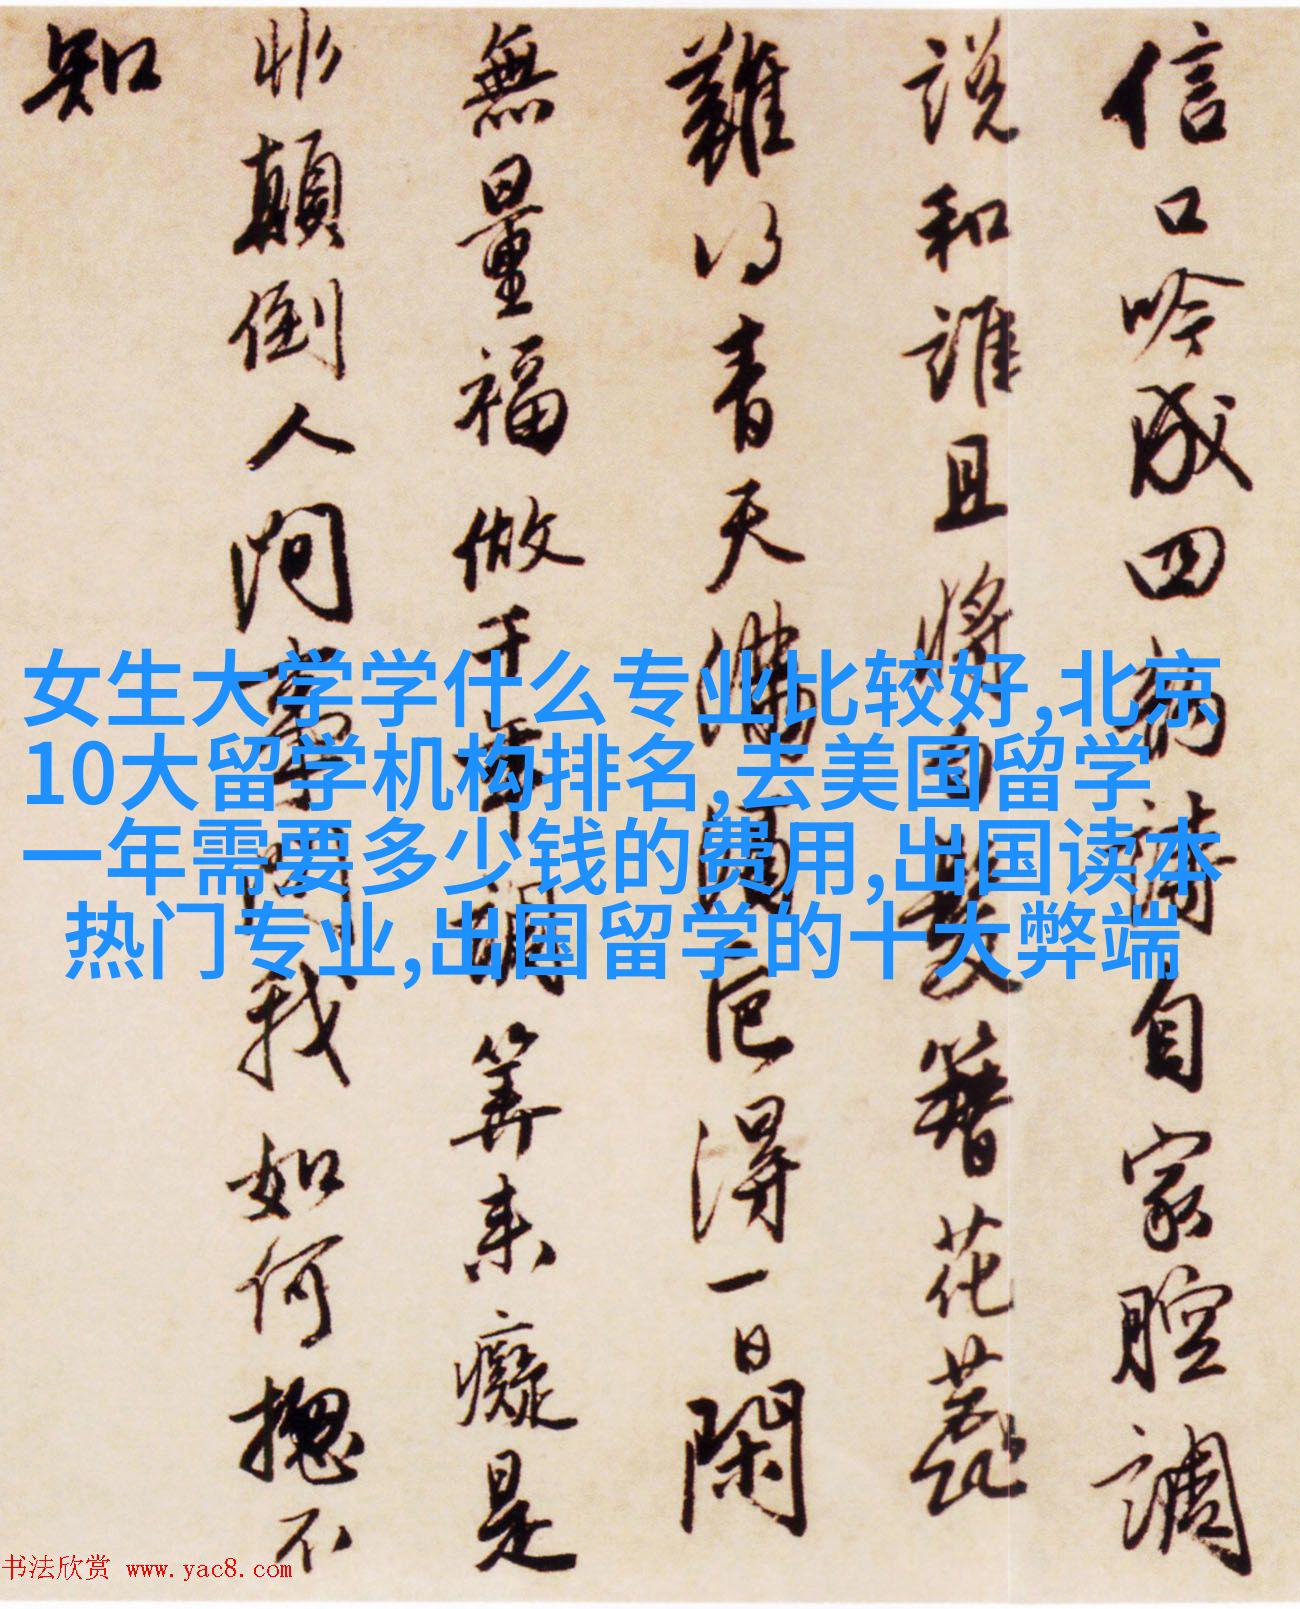 信口吟成四詩自家腔調
說和誰且將白髮簪花蕊
難青天滿卮得一日閑
無量福做千年調算來癡是
非顛倒人間事問我如何摠不
知
女生大学学什么专业比较好,北京
10大留学机构排名,去美国留学
一年需要多少钱的费用,出国读本
热门专业,出国留学的十大弊端
书法欣赏 www.yac8.com